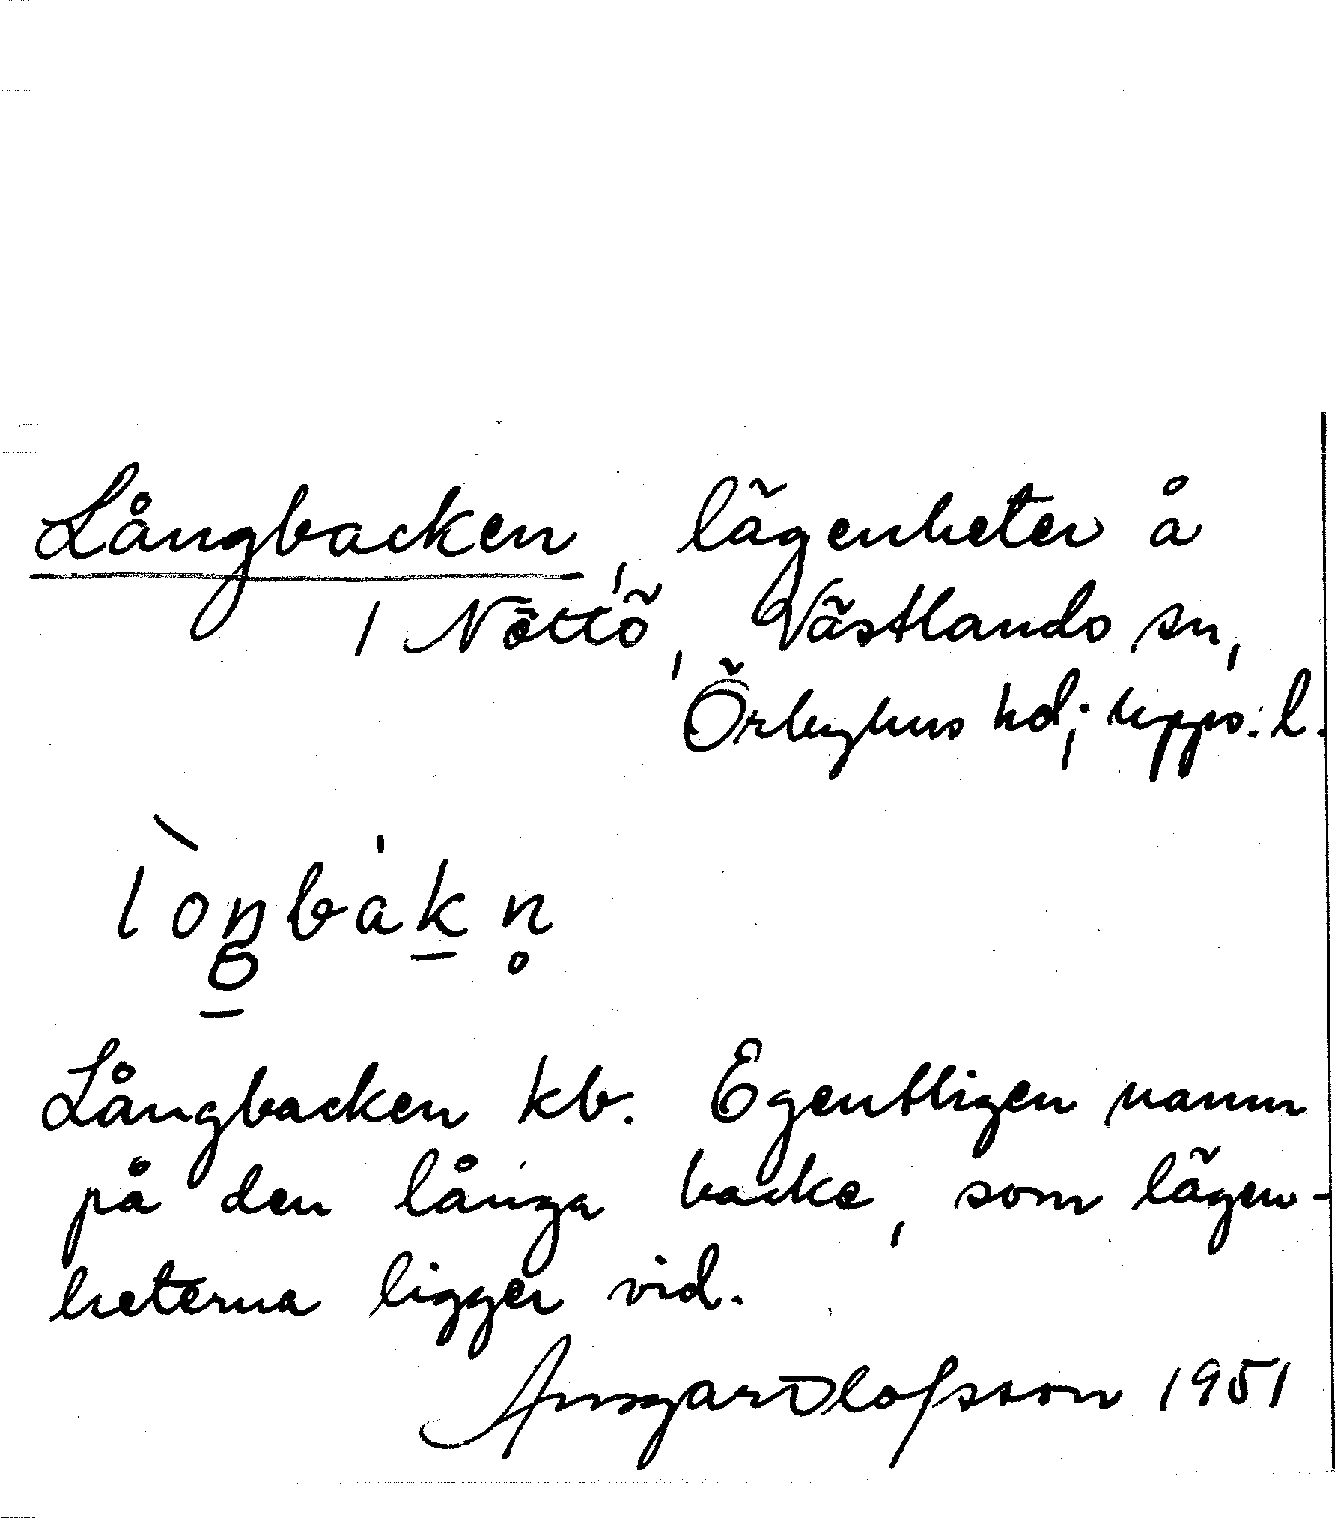 Långbacken, lägenheter å
1 Nöttö, Västlands sn,
Örbyhus hd; Upps. l.
lòŋbák̠n̥
Långbacken kb. Egentligen namn
på den långa backe, som lägen-
heterna ligger vid.
Ansgar Olofsson 1951